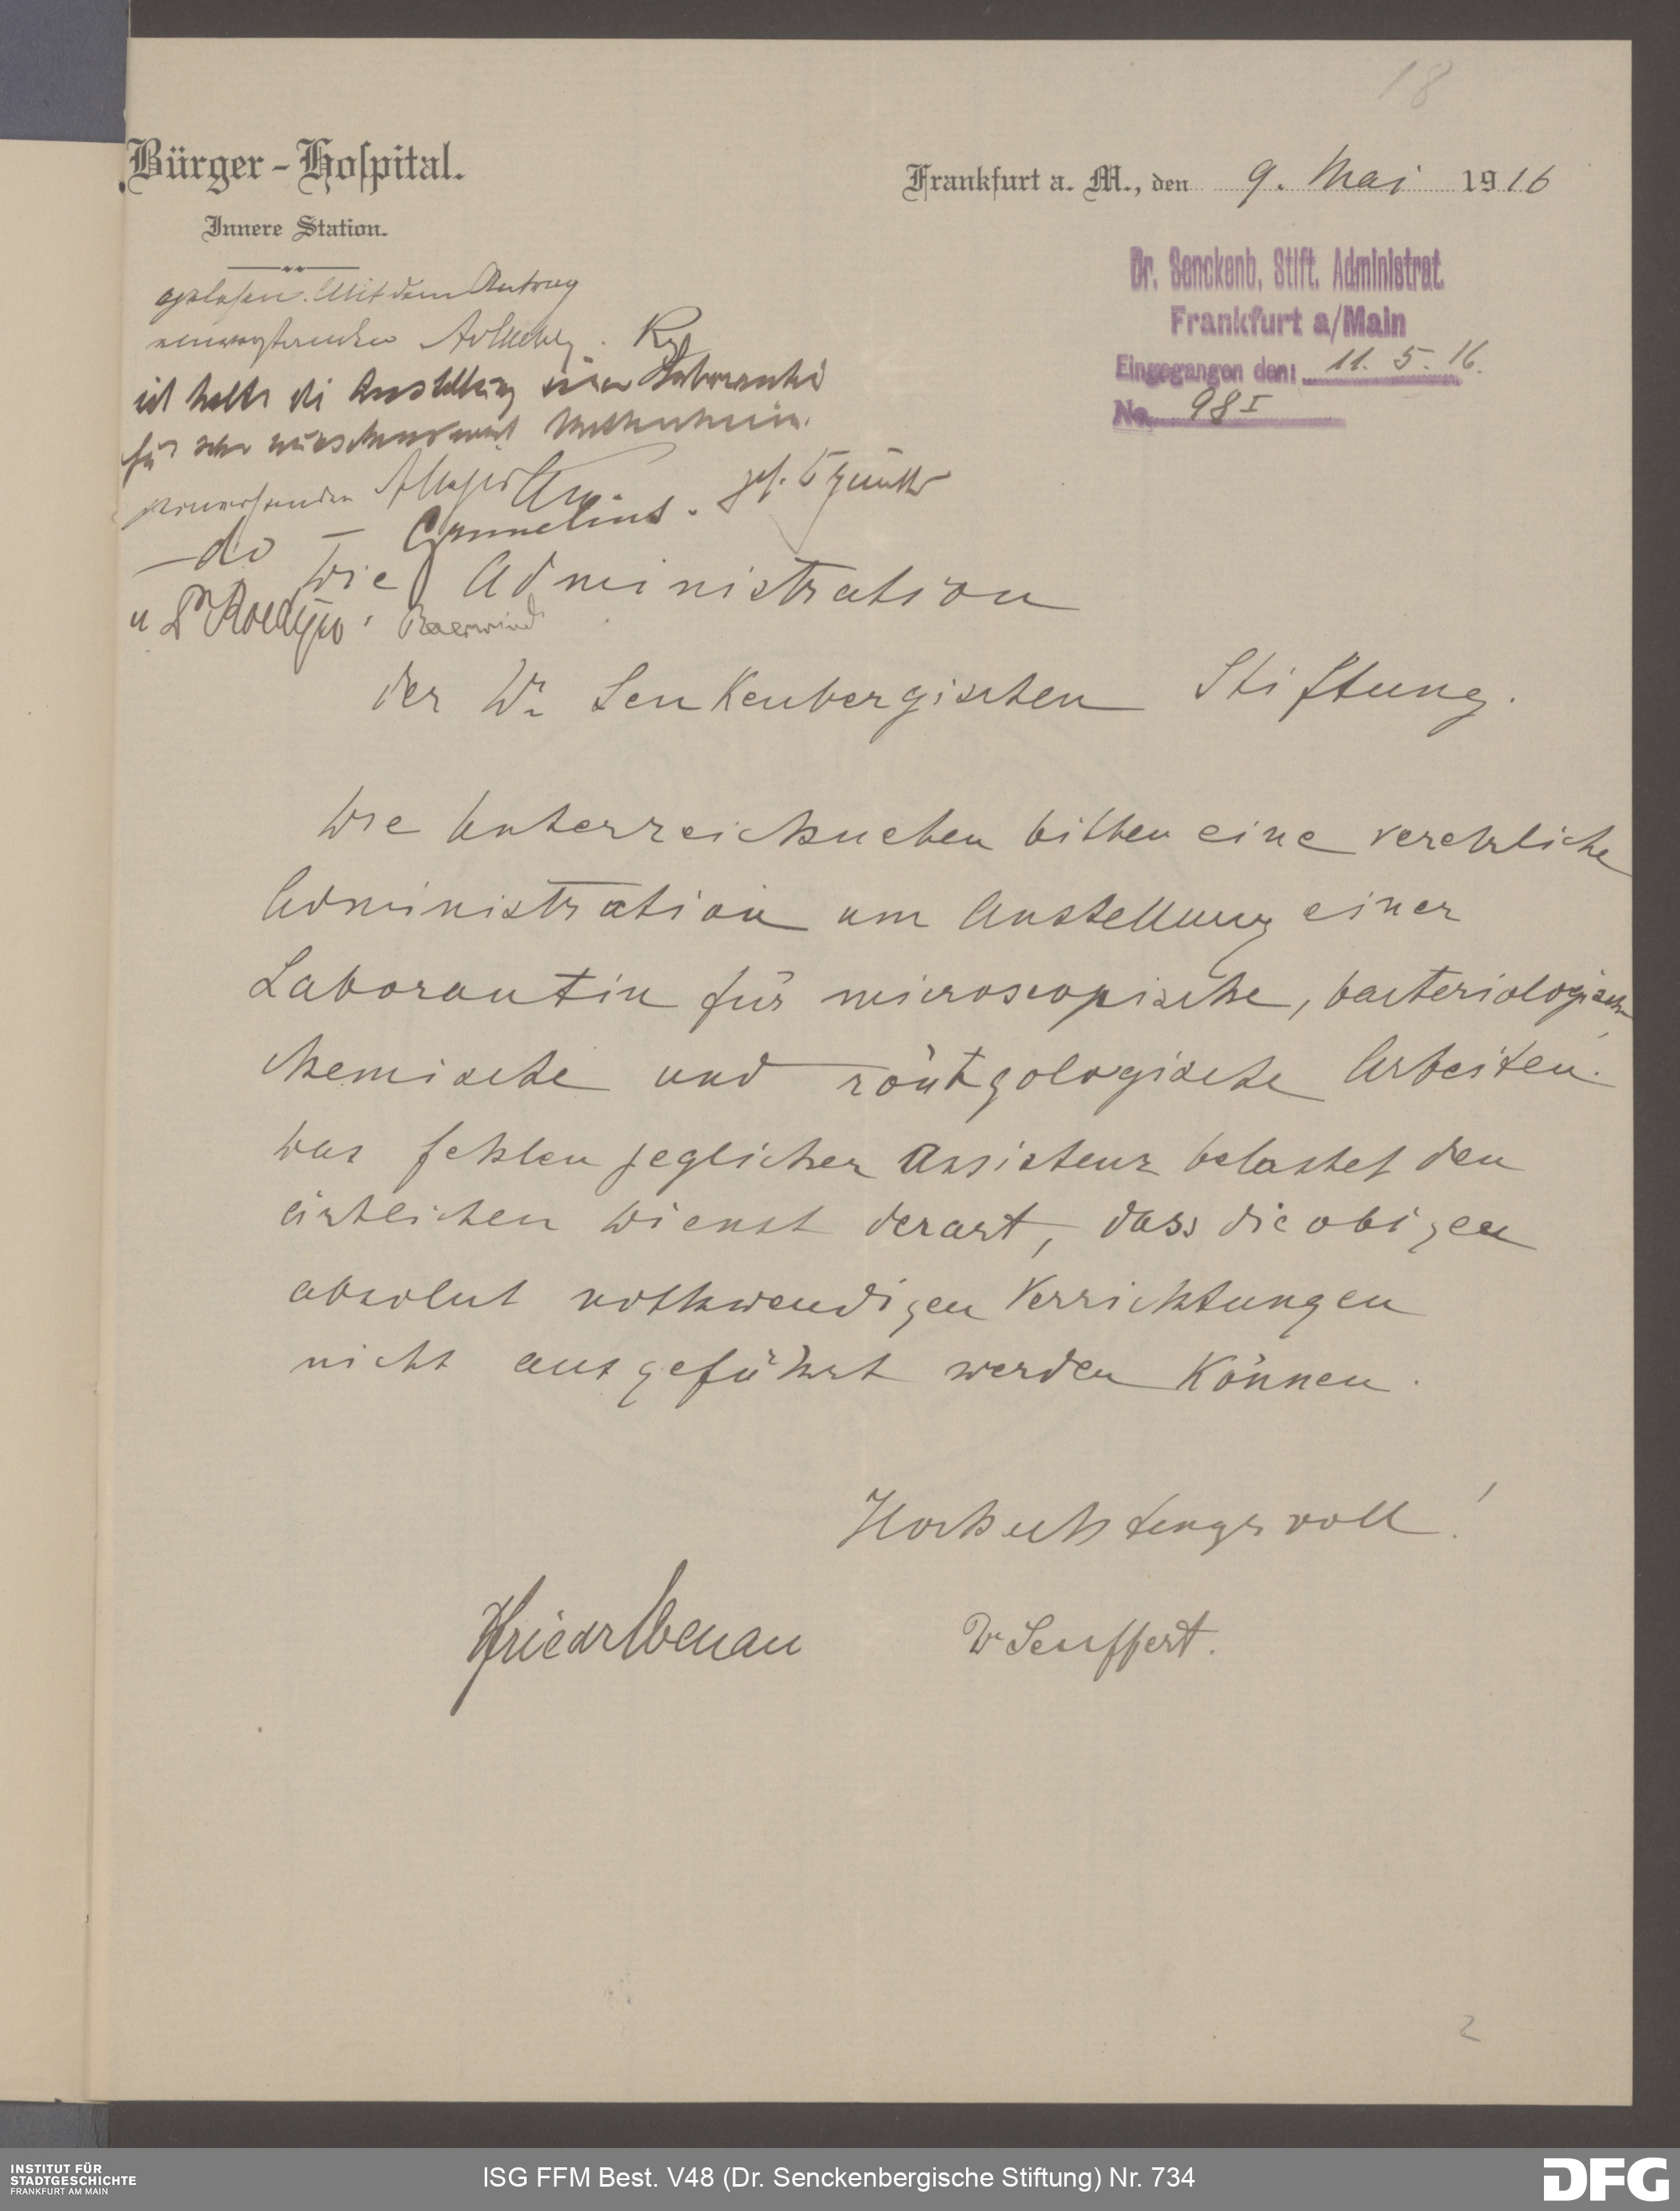 18
Bürger-Hospital.
Innere Station.
Frankfurt a. M., den 9. Mai 1916
Dr. Senckenb. Stift. Administrat.
Frankfurt a/Main
Eingegangen den: 11. 5. 16.
No. 98 I
gelesen. Mit dem Antrag
einverstanden
ich halte die Anstellung einer Laborantin
für sehr wünschenswert
einverstanden
gef.
-do-
Die Administration
u Dr Roediger
der Dr Senkenbergischen Stiftung.
Die Unterzeichneten bitten eine verehrliche
Administration um Anstellung einer
Laborantin für microscopische, bacteriologische
chemische und röntgologische Arbeiten.
Das fehlen jeglicher Assistenz belastet den
ärztlichen Dienst derart, dass die obigen
absolut nothwendigen Verrichtungen
nicht ausgeführt werden können.
Hochachtungsvoll!
Dr Seuffert.
2
INSTITUT FÜR
STADTGESCHICHTE
FRANKFURT AM MAIN
ISG FFM Best. V48 (Dr. Senckenbergische Stiftung) Nr. 734
DFG